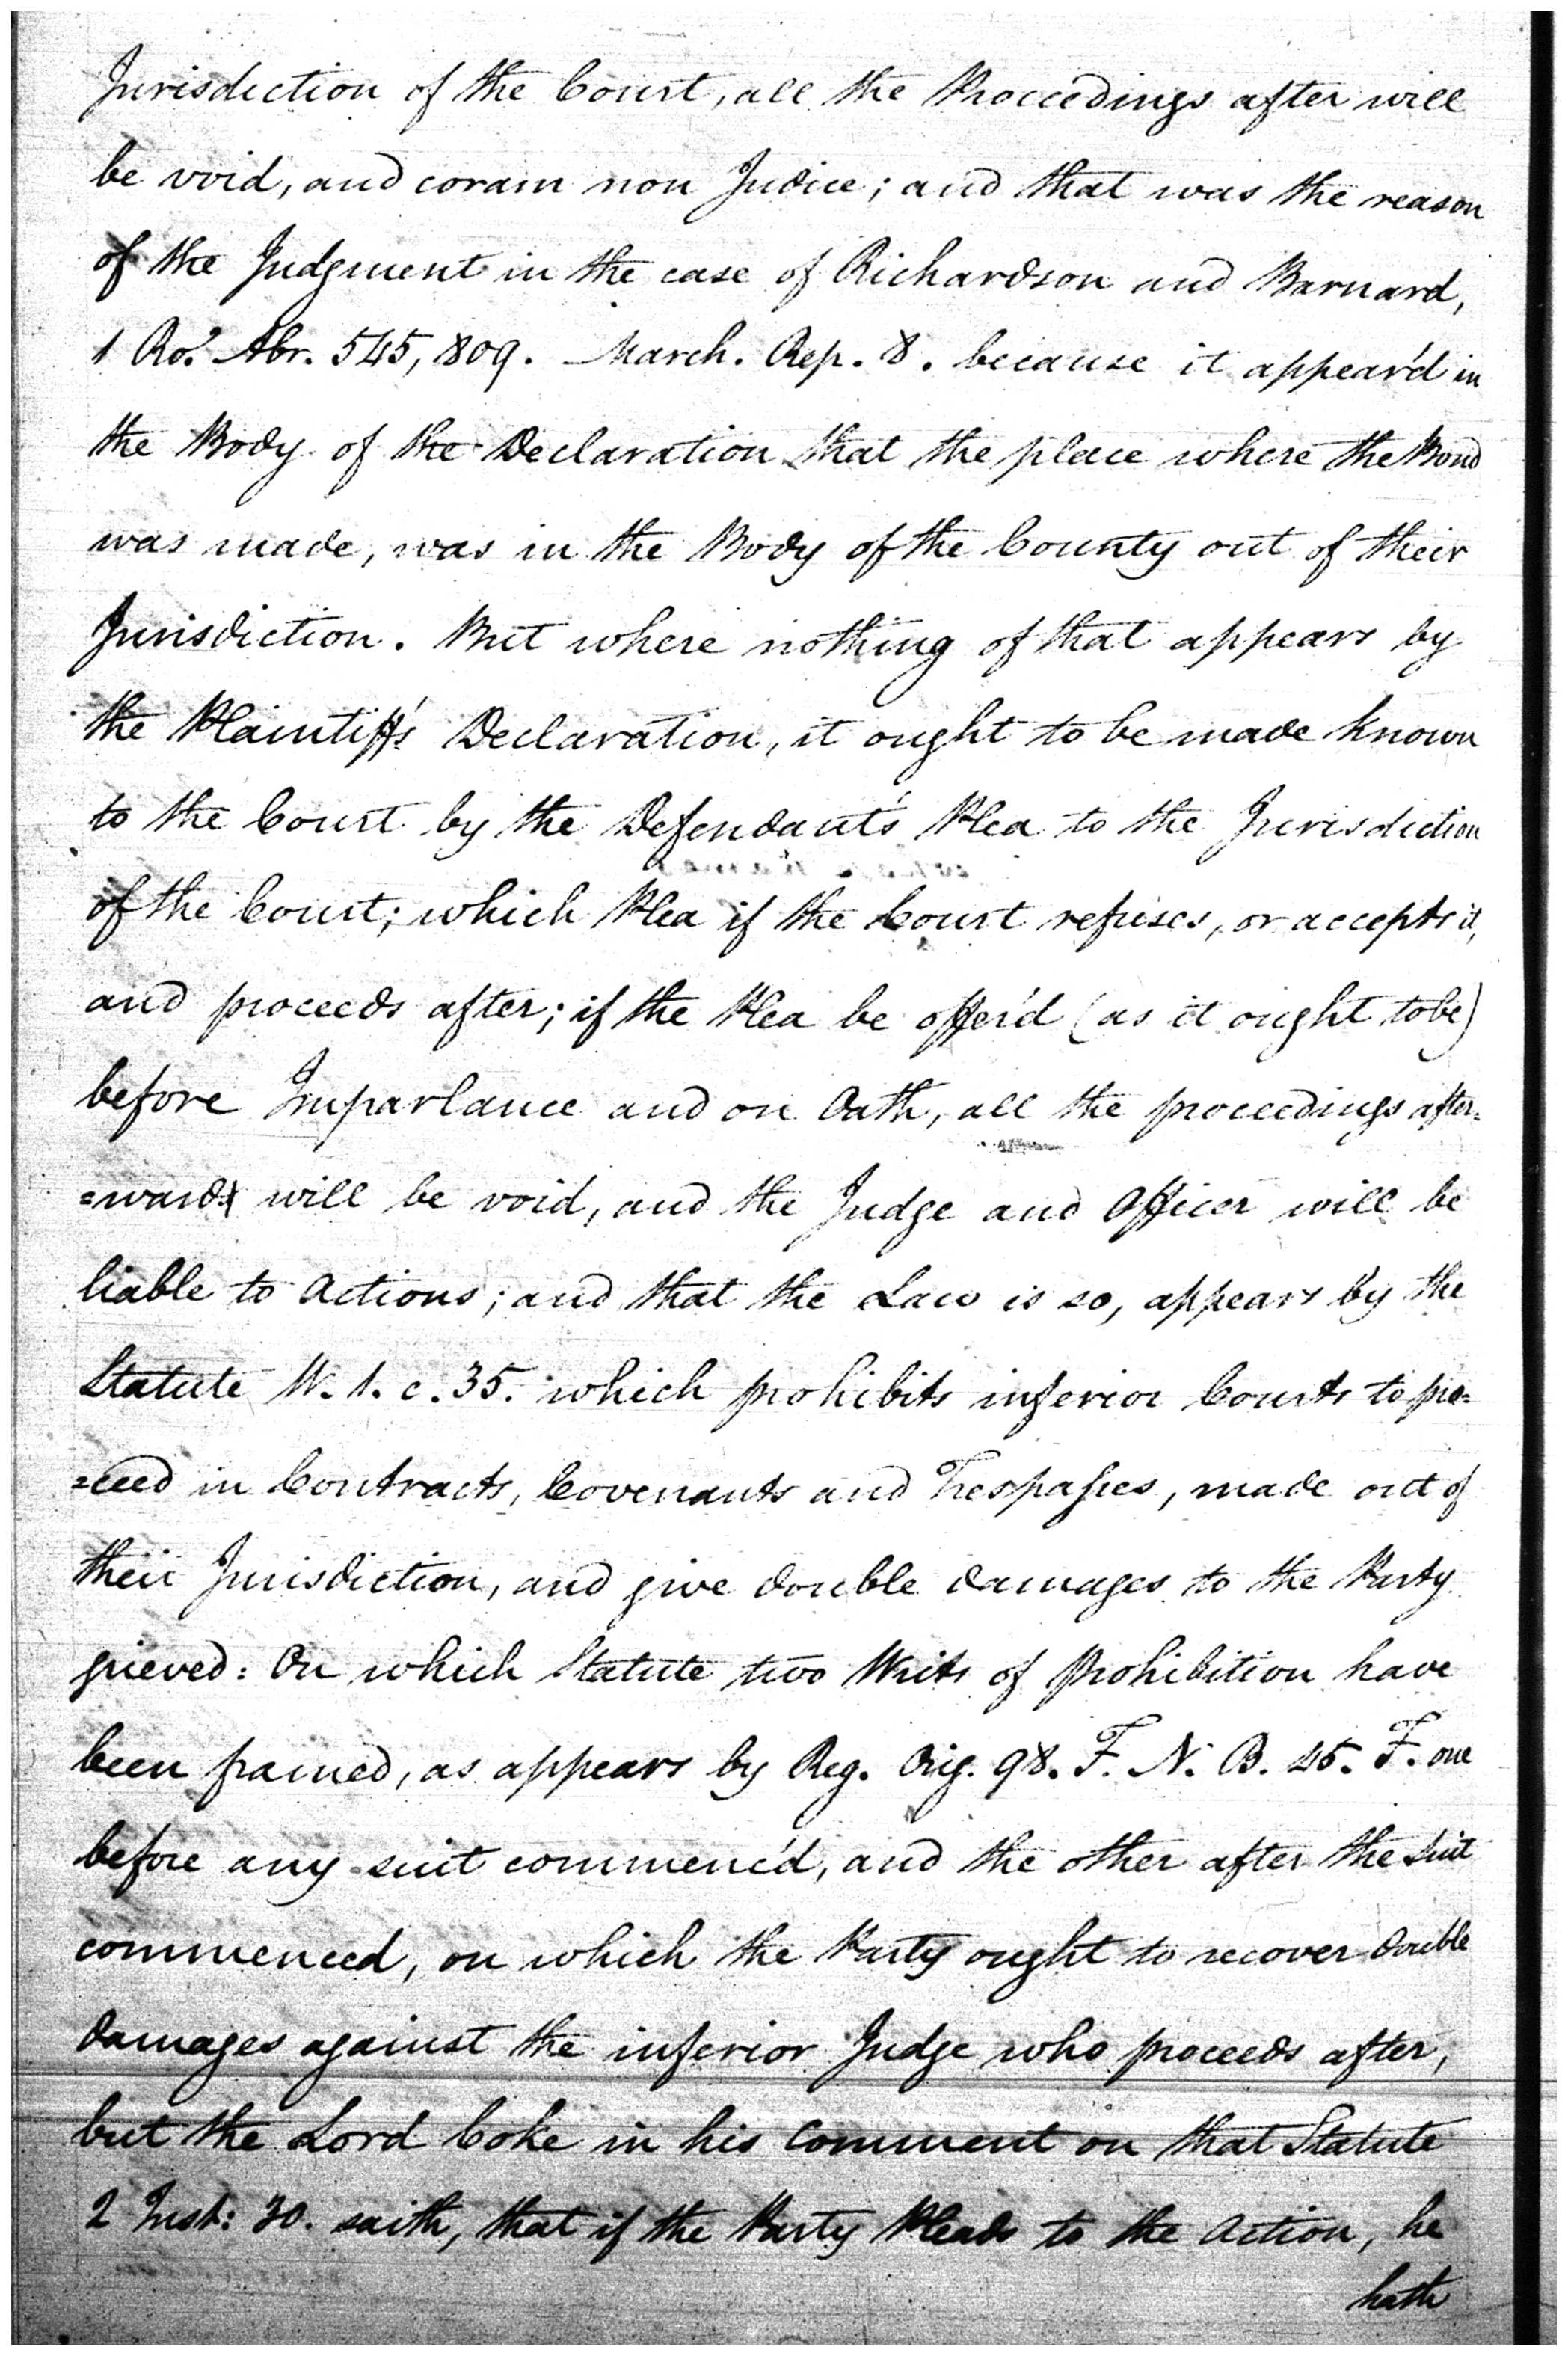 Jurisdiction of the Court, all the Proceedings after will
be void, and coram non Judice; and that was the reason
of the Judgment in the case of Richardson and Barnard,
1 Ro. Abr. 545, 809. March. Rep. 8. because it appear'd in
the Body of the Declaration that the place where the Bond
was made, was in the Body of the County out of their
Jurisdiction. But where nothing of that appears by
the Plaintiff's Declaration, it ought to be made known
to the Court by the Defendant's Plea to the Jurisdiction
of the Court; which Plea if the Court refuses, or accepts it,
and proceeds after; if the Plea be offer'd (as it ought to be)
before Imparlance and on Oath, all the proceedings after=
=wards will be void, and the Judge and Officer will be
liable to Actions; and that the Law is so, appears by the
Statute W. 1. c. 35. which prohibits inferior Courts to pro=
=ceed in Contracts, Covenants and Trespasses, made out of
their Jurisdiction, and give double damages to the Party
grieved: On which Statute two Writs of Prohibition have
been framed, as appears by Reg. Orig. 98. F. N. B. 45. F. one
before any suit commenc'd, and the other after the Suit
commenced, on which the Party ought to recover double
damages against the inferior Judge who proceeds after,
but the Lord Coke in his Comment on that Statute
2 Inst: 30. saith, that if the Party Pleads to the Action, he
hath